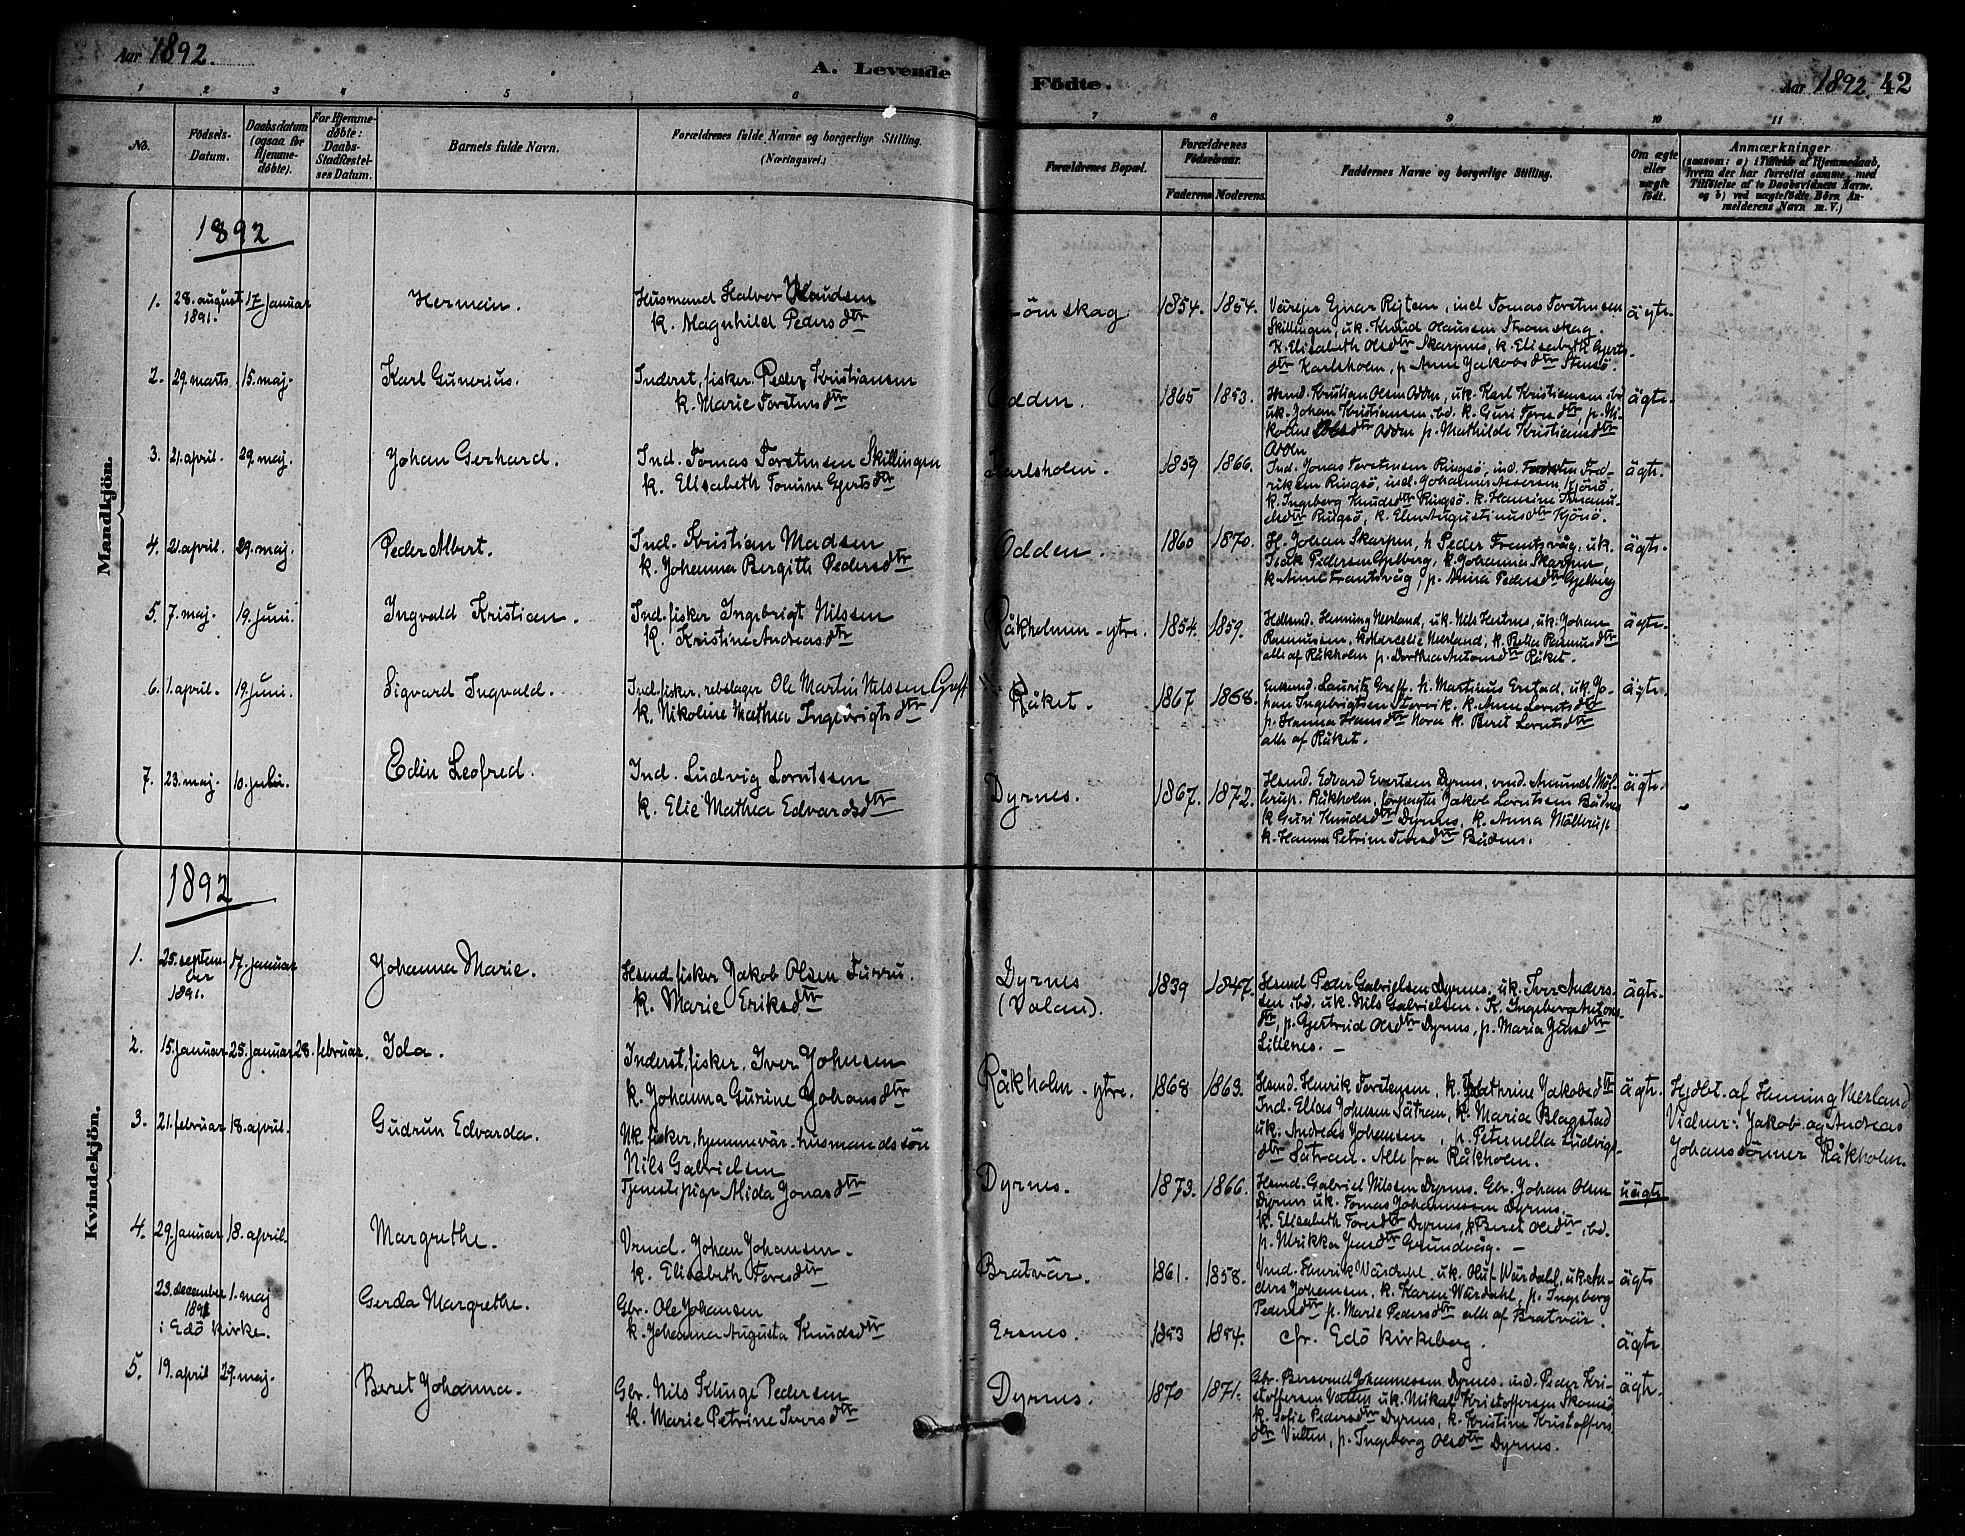 Aar 1892.
A. Levende Födte.
Aar 1892. 42
1 2 3 4 5 6 7 8 9 10 11
No.
Födsels-
Datum.
Daabsdatum
(ogsaa for
Hjemme-
döbte).
For Hjemme-
döbte:
Daabs-
Stadfæstel-
ses Datum.
Barnets fulde Navn.
Forældrenes fulde Navne og borgerlige Stilling.
(Næringsvei.)
Forældrenes Bopæl.
Forældrenes
Födselsaar.
Faderens Moderens
Faddernes Navne og borgerlige Stilling.
Om ægte
eller
uægte
födt.
Anmærkninger
(saasom: a) i Tilfælde af Hjemmedaab,
hvem der har forrettet samme, med
Tilföielse af to Daabsvidners Navne.
og b) ved uægtefödte Börn An-
melderens Navn m. V.)
Mandkjön.
1892
1. 28. august 17 januar Herman. Husmand Halvor
1891. k. Magnhild Pedersdtr
ömskag 1854. 1854. ägte.
Skillingen, uk. Knud Olaussen Strömskag.
K. Elisabeth Olsdtr Skarpnes, k. Elisabeth Gjerts-
dtr Karlsholm, p Anne Jakobsdtr Stensö.
2. 29. marts 15. maj. Karl Gunerius. Inderst, fisker Peder Kristiansen
k. Marie Torstensdtr
Odden. 1865 1853. Hsmd. Kristian Olsen Odden, uk. Karl Kristiansen ibd ägte.
uk. Johan Kristiansen ibd. k. Guri Toresdtr, p. Ni-
koline Olsdtr Odden p. Mathilde Kristiansdtr
Odden
3. 21. april. 29. maj. Johan Gerhard. Ind. Tomas Torstensen Skillingen
k. Elisabeth Tomine Gjertsdtr
Karlsholm. 1859 1866. Ind. Jonas Torstensen Ringsö, ind. Torsten Fred- ägte.
riksen Ringsö, ind. Johannes Assersen Kjönsö,
k. Ingeborg Knudsdtr Ringsö. k. Hansine Emanu-
elsdtr Ringsö, k. Elen Augustinusdtr Kjönsö.
4. 21. april. 29. maj. Peder Albert. Ind. Kristian Madsen
k. Johanna Birgitte Pedersdtr
Odden. 1860 1870. H. Johan Skarpen, h Peder Frantsvåg, uk. ägte.
Isak Pedersen Gjelberg, k. Johanna Skarpen,
k. Anne Frantsvåg, p. Anna Pedersdtr Gjelberg
5. 7. maj. 19. juni. Ingvald Kristian. Ind. fisker Ingebrigt Nilssen
k. Kristine Andreasdtr
Råkholmen - ytre. 1854. 1859. Henning Nerland, uk. Nils Hestnes, uk. Johan ägte.
Rasmussen, Nerland, k. Rasmusdtr
alle af Råkholm p. Dorthea Antonsdtr Råket.
6. 1. april. 19. juni. Sigvard Ingvald. Ind. fisker, rebslager Ole Martin Nilssen Greft
k. Nikoline Mathea Ingebrigtsdtr
Råket. 1867 1868. Lauritz Greft. h. Martinus Erstad, uk. Jo- ägte.
han Ingebrigtsen Storvik. k. Anne Lorntsdtr
p. Hanna Hansdtr Nora k. Beret Lorntsdtr
alle af Råket.
7. 23. maj. 10. juli. Edin Leofred. Ind. Ludvig Lorntssen
k. Elie Mathea Edvardsdtr
Dyrnes. 1867. 1872. Hsmd. Edvard Evertsen Dyrnes, Amund Möl- ägte.
lerup. Råkholm, forpagter Jakob Lorntsen Bådnes
k Guri Knudsdtr Dyrnes, k. Anna Möllerup
k. Hanna Petrine Toresdtr Bådnes.
Kvindekjön.
1892
1. 25. septem- 17. januar Johanna Marie. Hsmd. fisker Jakob Olsen
ber
1891. k. Marie Eriksdtr
Dyrnes 1839 1847. Hsmd Peder Gabrielsen Dyrnes, uk. Iver Anders- ägte.
(Valan). sen ibd. uk. Nils Gabrielsen. K. Ingeborg Antons-
dtr, p. Gjertrud Olsdtr Dyrnes, p. Maria Jensdtr
Lillenes. –
2. 15. januar 25. januar 28. februar. Ida. Inderst, fisker, Iver Johnsen
k. Johanna Gurine Johansdtr
Råkholm - ytre. 1868 1863. Hsmd. Henrik Torstensen, k. Kathrine Jakobsdtr ägte.
Ind. Elias Johnsen Sätran, k. Maria Blagstad
uk. Andreas Johansen, p. Petrenella Ludvigs-
dtr Sätran. Alle fra Råkholm.
Hjdbt. af Henning Nerland
Vidner: Jakob og Andreas
Johanssönner Råkholm.
3. 21. februar 18. april. Gudrun Edvarda. Uk. fisker, hjemmevär. husmandssön
Nils Gabrielsen
Tjenestepige Alida Jonasdtr
Dyrnes. 1873. 1866. Hsmd. Gabriel Nilssen Dyrnes. Gbr. Johan Olsen uägte
Dyrnes uk. Tomas Johannessen Dyrnes.
k. Elisabeth Toresdtr Dyrnes, p Beret Olsdtr, ibd.
p. Ulrikka Jensdtr Grundvåg. –
4. 29. januar 18. april. Margrethe. Johan Johansen.
k. Elisabeth Toresdtr
Bratvär. 1861. 1858. Henrik Wärdahl. uk. Oluf Wärdahl, uk. An- ägte
ders Johansen, k. Karen Wärdahl, p. Ingeborg
Pedersdtr p. Marie Pedersdtr alle af Bratvär.
23. december 1. maj Gerda Margrethe. Gbr. Ole Johansen
1891
i Edö kirke. k. Johanna Augusta Knudsdtr
Ersnes. 1853 1854. cfr. Edö kirkebog. ägte
5. 19. april 29. maj. Beret Johanna. Gbr. Nils Klinge Pedersen
k. Marie Petrine Iversdtr
Dyrnes. 1870 1871. Gbr. Johannessen Dyrnes. ind. Peder Kri- ägte.
stoffersen uk. Mikal Kristoffersen
k. Sofie Pedersdtr Dyrnes, k. Kristine Kristoffers
dtr p. Ingeborg Olsdtr Dyrnes.